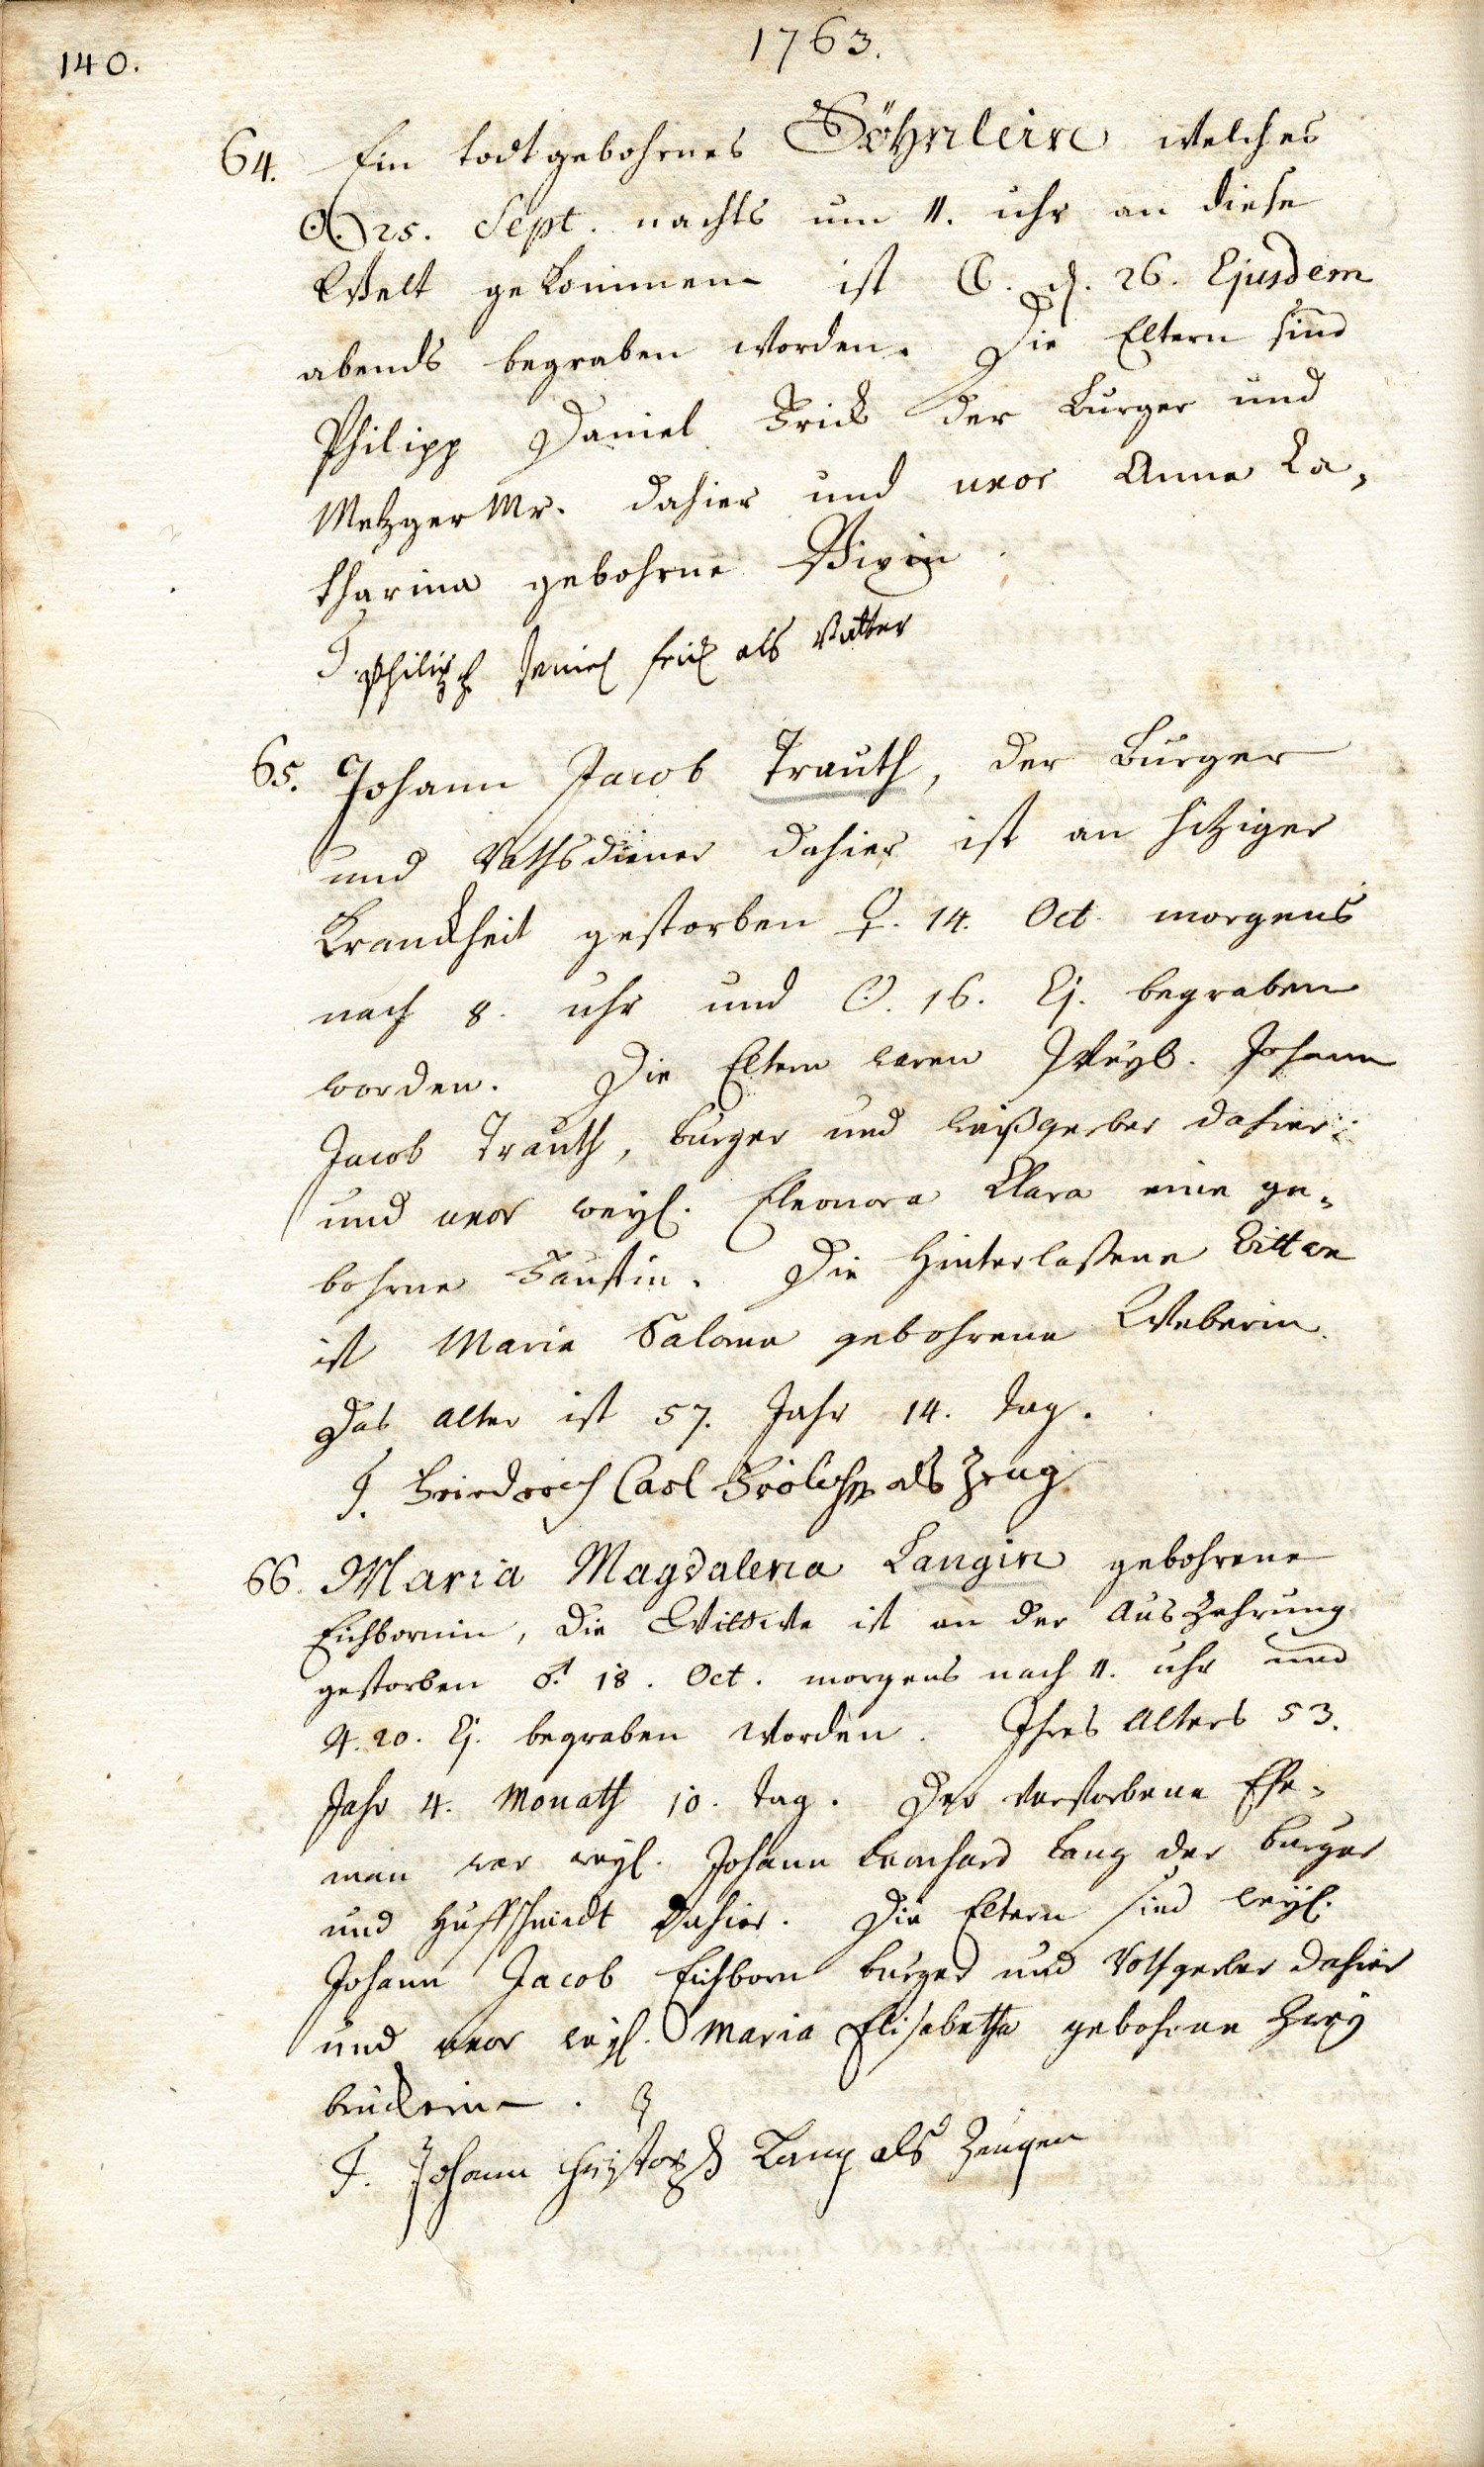 140.
1763.
64. Ein todtgebohrnes Söhnlein welches
☉. 25. Sept. nachts um 11. uhr an diese
Welt gekommen ist ☾. d. 26. Ejusdem
abends begraben worden. Die Eltern sind
Philipp Daniel Frick der Burger und
Metzger Mr. dahier und uxor Anna Ca„
tharina gebohrne
T. Philipp Daniel Frick als Vatter
65. Johann Jacob Trauth, der Burger
und Rathsdiener dahier ist an hitziger
Kranckheit gestorben ♀. 14. Oct. morgens
nach 8. uhr und ☉. 16. Ej. begraben
worden. Die Eltern waren Weyl. Johann
Jacob Trauth, Burger und Weißgerber dahier
und uxor weyl. Eleonora Clara eine ge„
bohrne Faustin. Die Hinterlaßene Wittwe
ist Maria Salome gebohrene Weberin.
Das Alter ist 57. Jahr 14. Tag.
T. Friedrich Carl Frölich als Zeug
66. Maria Magdalena Langin gebohrene
Eichbornin, die Wittwe ist an der Auszehrung
gestorben ♂. 18. Oct. morgens nach 11. uhr und
♃. 20. Ej. begraben worden. Ihres Alters 53.
Jahr 4. Monath 10. Tag. Der verstorbene Ehe„
man war weyl. Johann Leonhard Lang der Burger
und Huffschmidt dahier. Die Eltern sind weyl.
Johann Jacob Eichborn Burger und Rothgerber dahier
und uxor weyl. Maria Elisabetha gebohrne Zwey
bruckerin.
T. Johann Christoph Lang als Zeugen